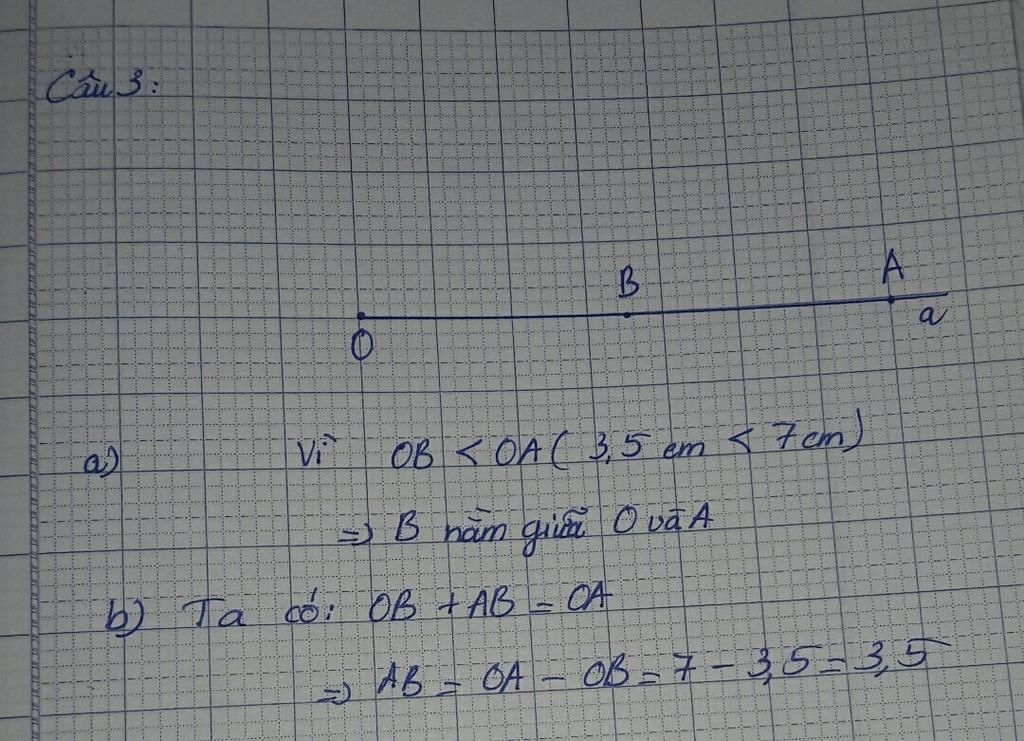 Câu 3:
B A
O a
a) Vì OB < OA ( 3,5 cm < 7 cm)
=> B nằm giữa O và A
b) Ta có: OB + AB = OA
=> AB = OA - OB = 7 - 3,5 = 3,5